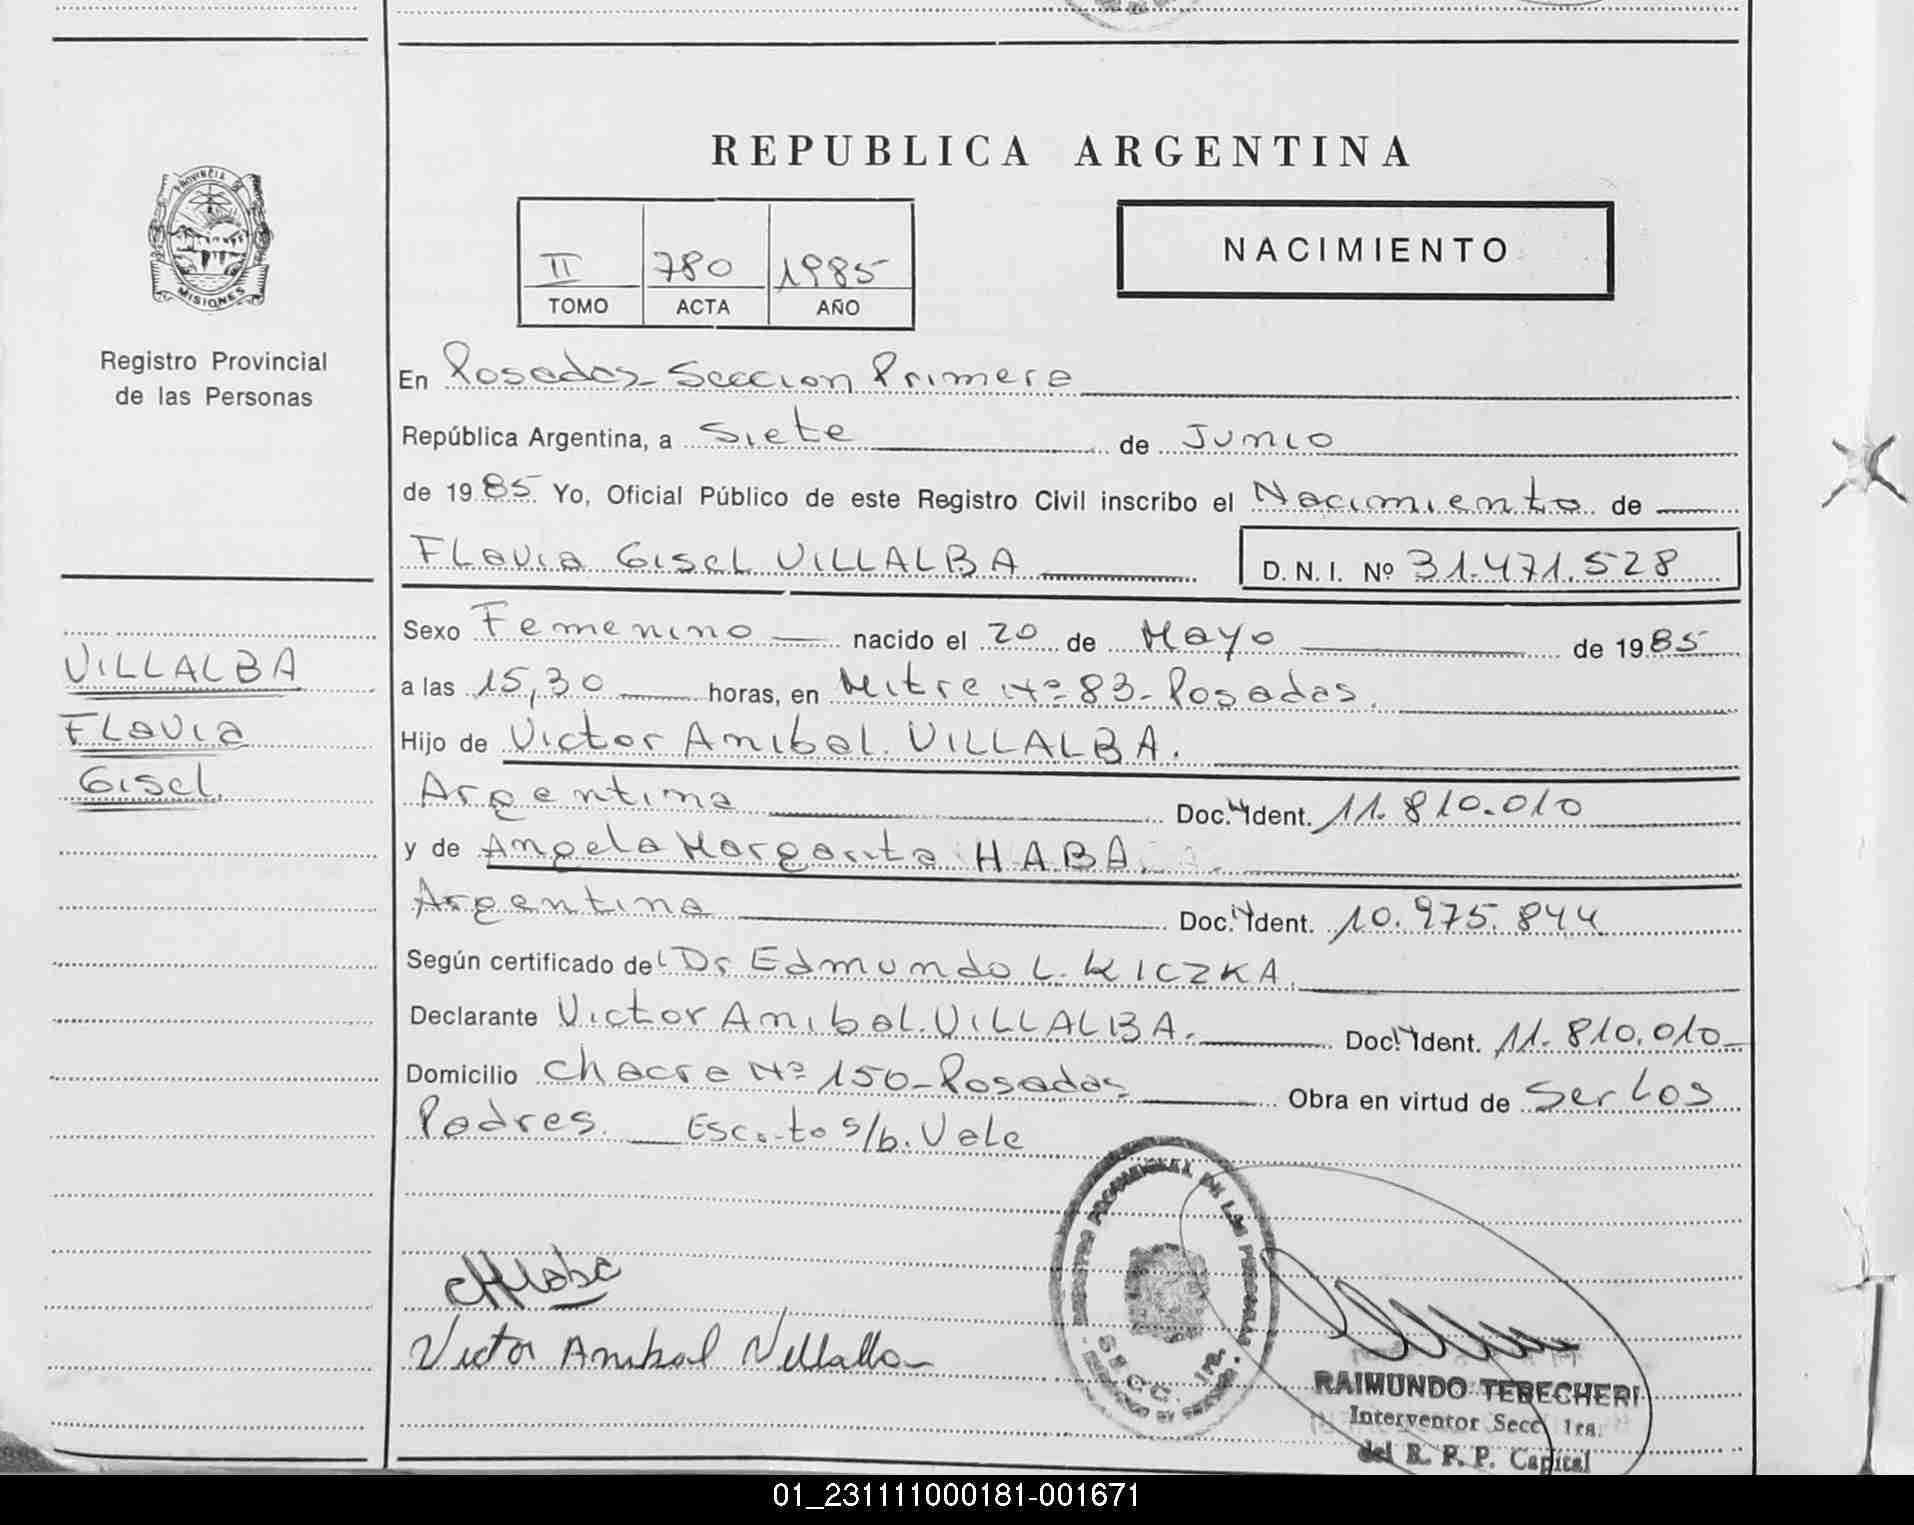 REPUBLICA ARGENTINA
PROVINCIA DE
MISIONES
Registro Provincial
de las Personas
II 780 1985
TOMO ACTA AÑO
NACIMIENTO
En Posadas - Seccion Primera
República Argentina, a Siete de Junio
de 1985 Yo, Oficial Público de este Registro Civil inscribo el Nacimiento de
Flavia Gisel VILLALBA D. N. I. Nº 31.471.528
Sexo Femenino nacido el 20 de Mayo de 1985
a las 15,30 horas, en Mitre Nº 83 - Posadas.
Hijo de Victor Anibal. VILLALBA.
Argentina Doc. Ident. 11.810.010
y de Angela Margarita HABA.
Argentina Doc. Ident. 10.975.844
Según certificado del Dr Edmundo L. KICZKA.
Declarante Victor Anibal. VILLALBA. Doc. Ident. 11.810.010
Domicilio Chacra Nº 150 - Posadas Obra en virtud de Ser los
Padres. Escrito s/b. Vale
VILLALBA
Flavia
Gisel.
Victor Anibal Villalba
REGISTRO PROVINCIAL DE LAS PERSONAS
SECC. 1ra.
RAIMUNDO TEBECHERI
Interventor Secc. 1ra.
del R. P. P. Capital
01_231111000181-001671